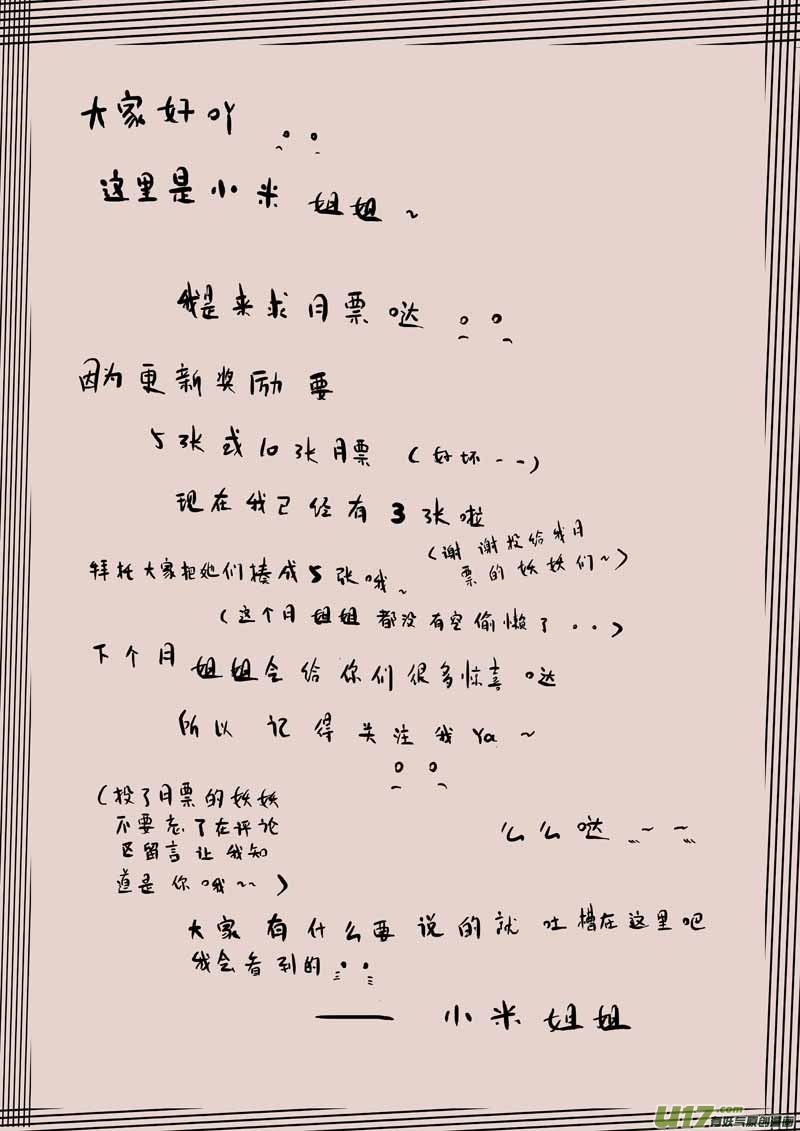 大家好吖
这里是小米姐姐~
我是来求月票哒
因为更新奖励要
5张或10张月票(好坏--)
现在我已经有3张啦
(谢谢投给我月
票的妖妖们~)
拜托大家把她们凑成5张哦~
(这个月姐姐都没有空偷懒了..)
下个月姐姐会给你们很多惊喜哒
所以记得关注我Ya~
(投了月票的妖妖
不要忘了在评论
区留言让我知
道是你哦~~)
么么哒~~
大家有什么要说的就吐槽在这里吧
我会看到的
——小米姐姐
U17.com
有妖气原创漫画